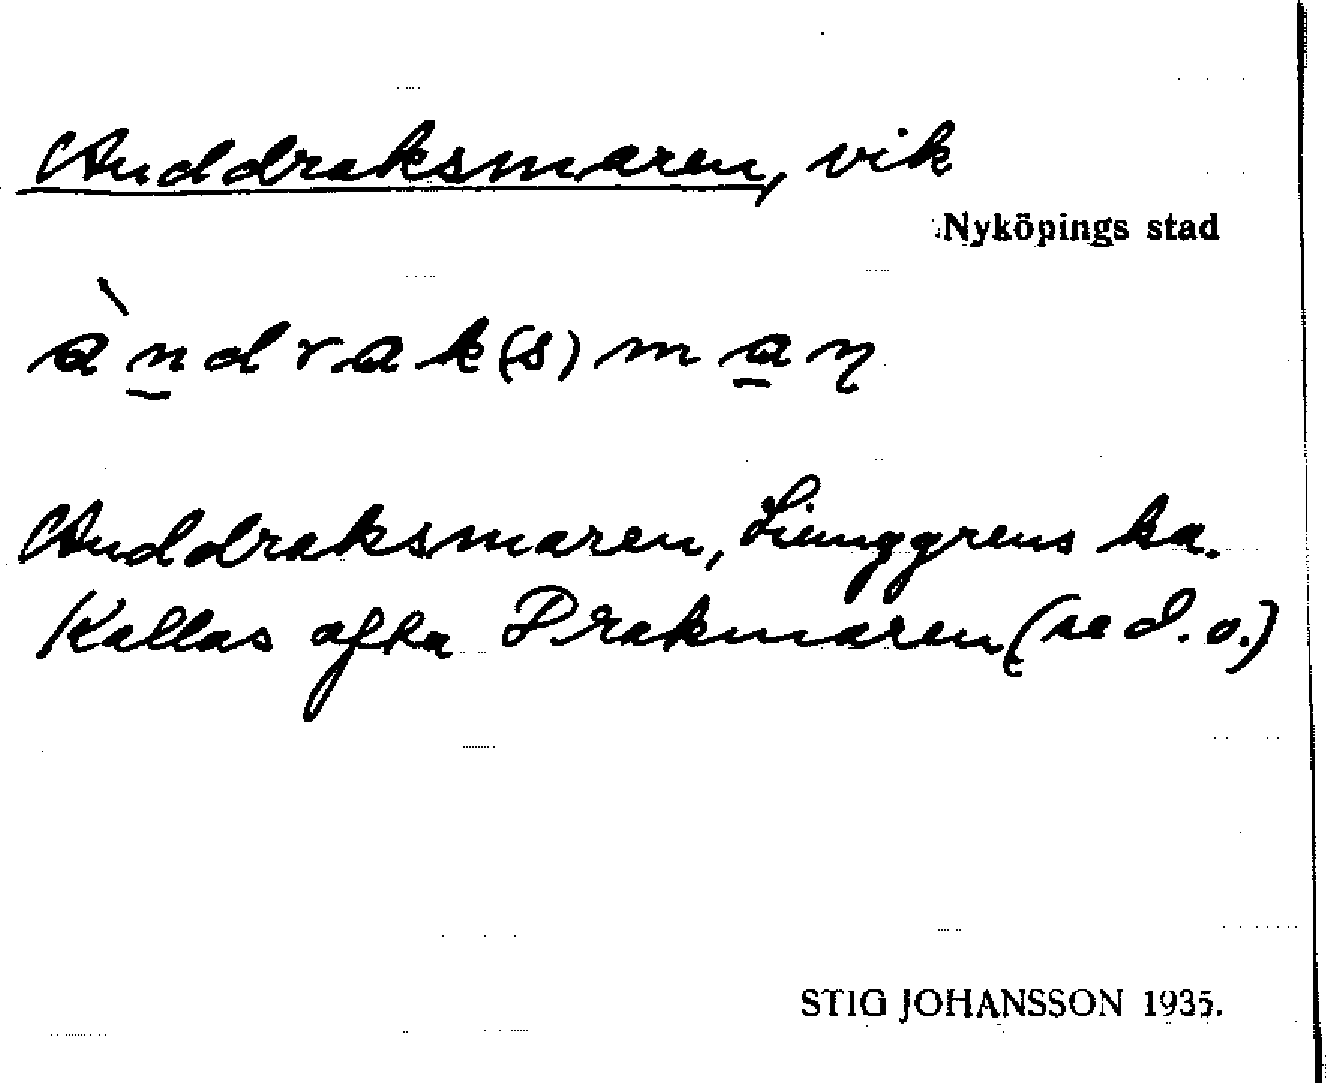 Anddraksmaren, vik
Nyköpings stad
àn̲drak(s)ma̲ņ
Anddraksmaren, Liunggrens ka.
Kallas ofta Drakmaren (se d. o.)
STIG JOHANSSON 1935.